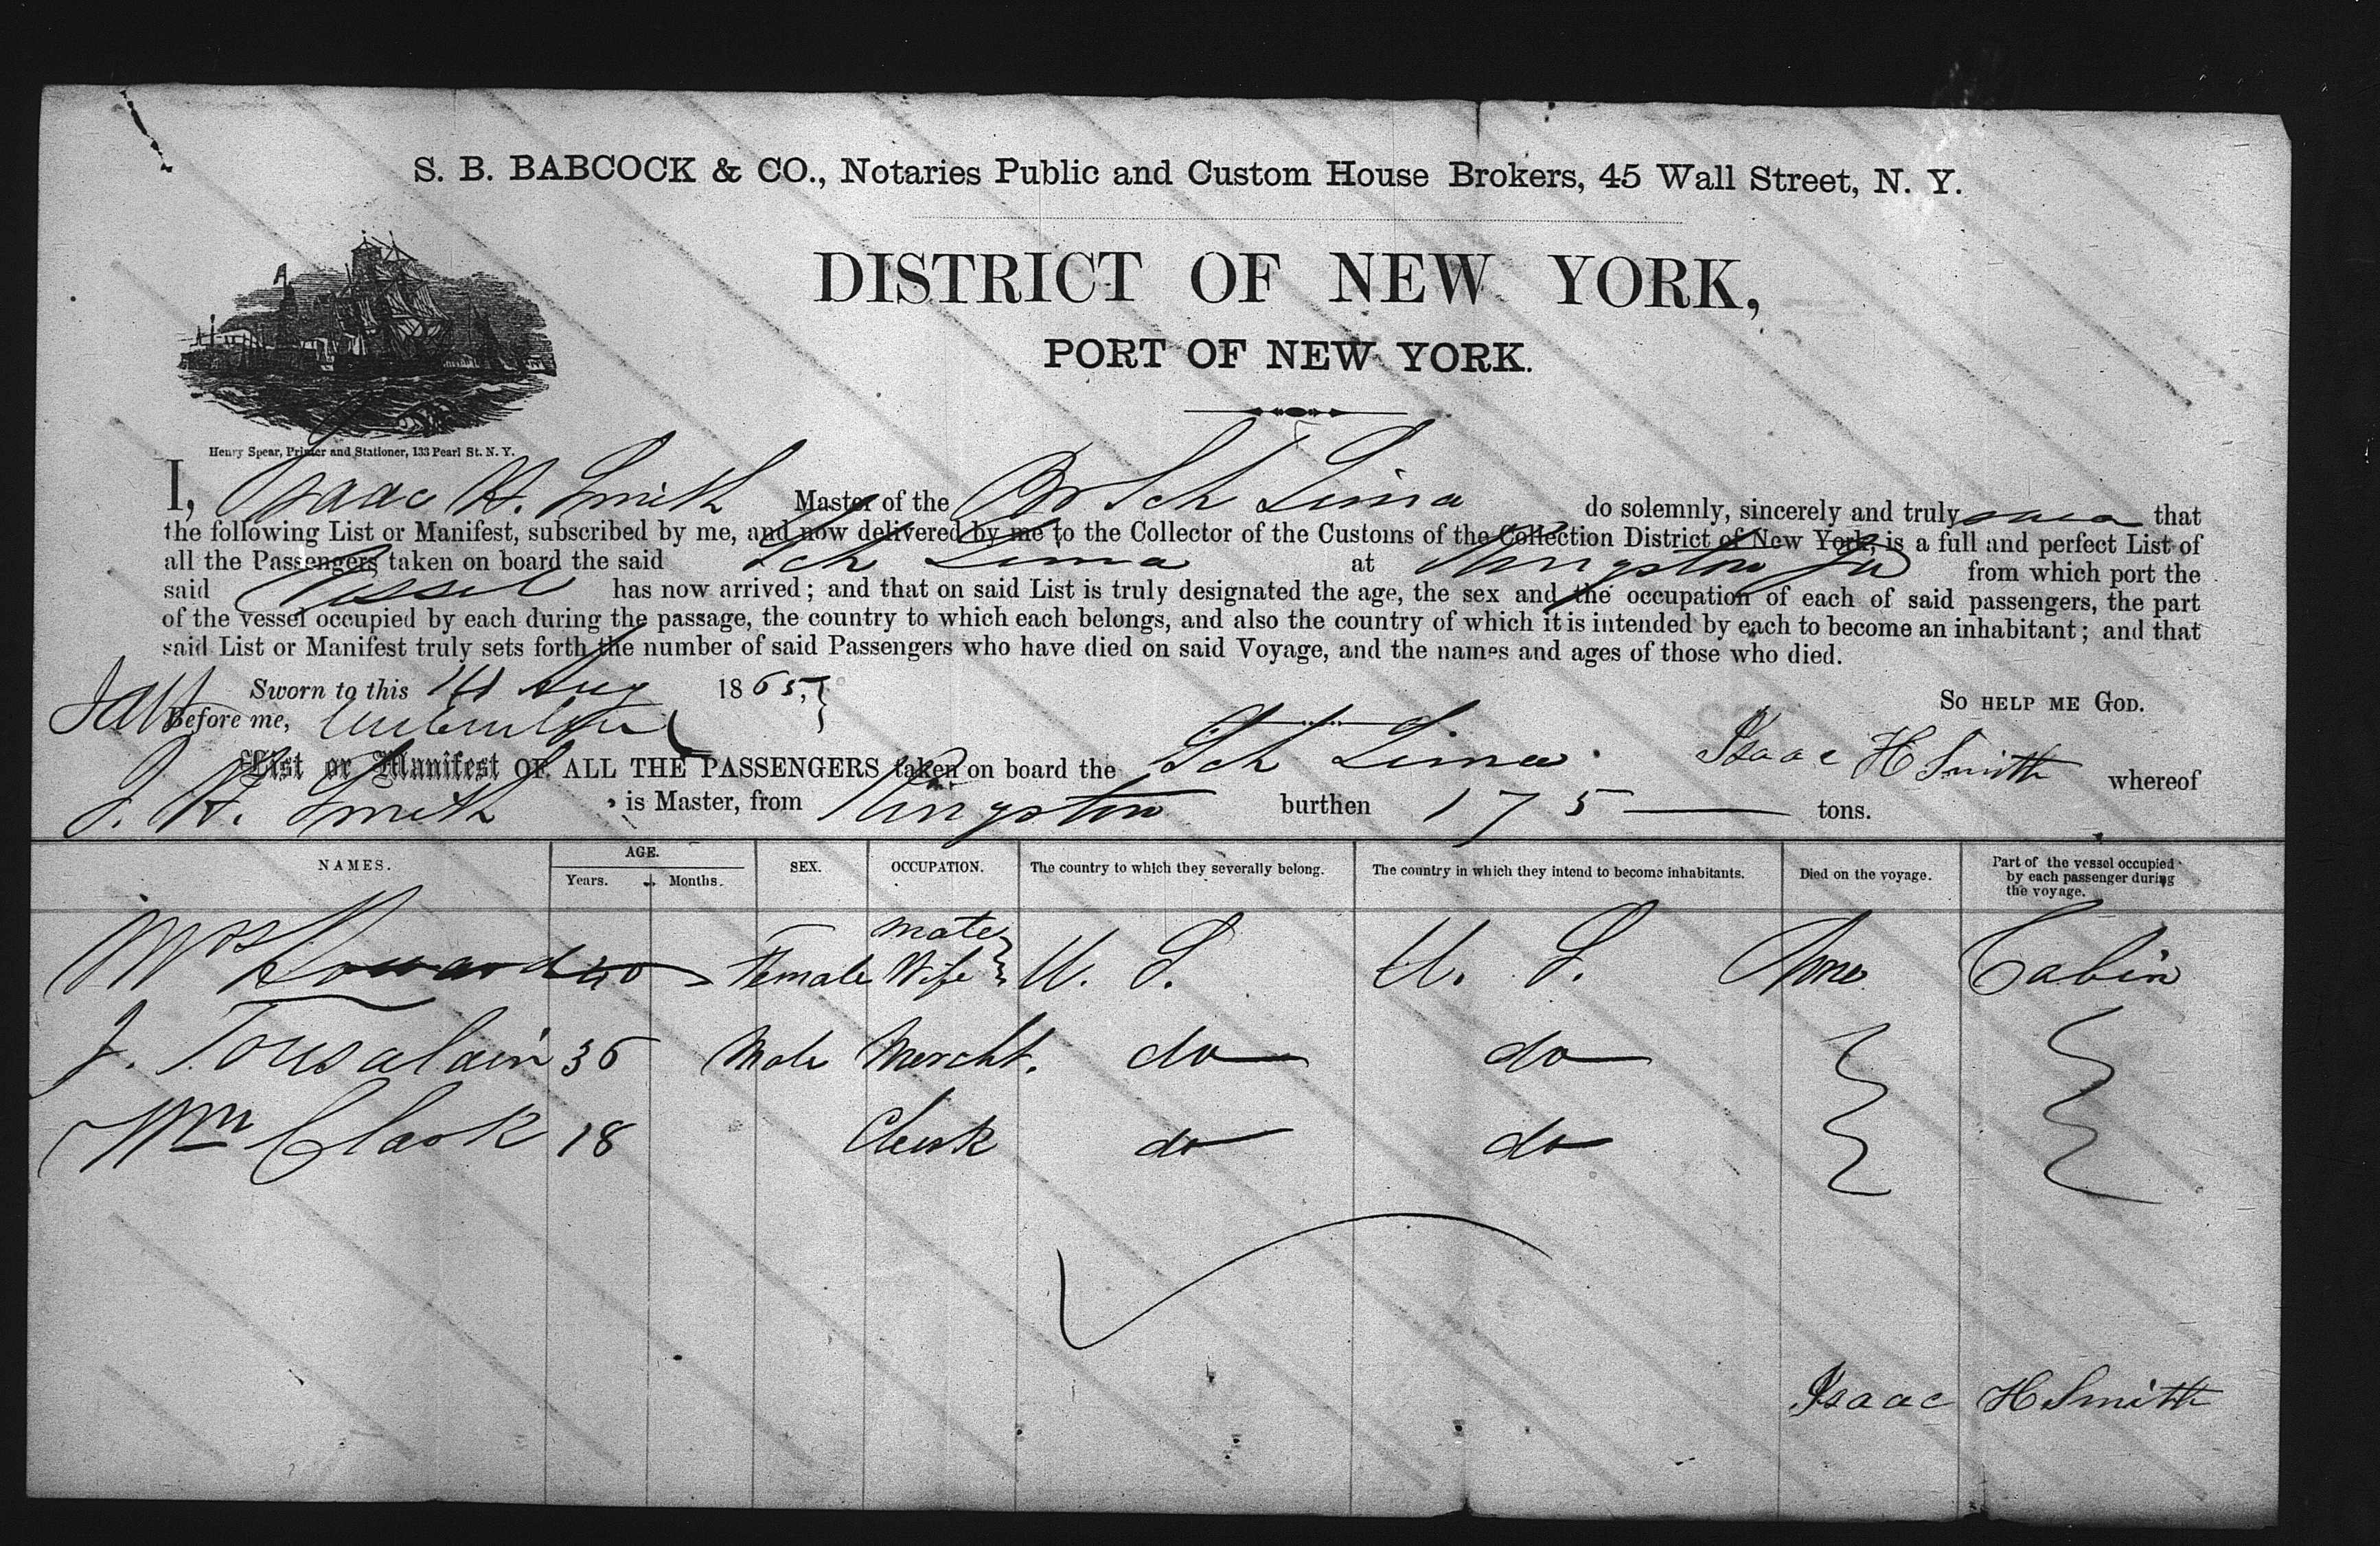 S. B. BABCOCK & CO., Notaries Public and Custom House Brokers, 45 Wall Street, N. Y.
DISTRICT OF NEW YORK,
PORT OF NEW YORK.
Henry Spear, Printer and Stationer, 133 Pearl St. N. Y.
I, Isaac H. Smith Master of the Br Sch Lima do solemnly, sincerely and truly swear that
the following List or Manifest, subscribed by me, and now delivered by me to the Collector of the Customs of the Collection District of New York, is a full and perfect List of
all the Passengers taken on board the said Sch Lima at Kingston Ja from which port the
said Vessel has now arrived; and that on said List is truly designated the age, the sex and the occupation of each of said passengers, the part
of the vessel occupied by each during the passage, the country to which each belongs, and also the country of which it is intended by each to become an inhabitant; and that
said List or Manifest truly sets forth the number of said Passengers who have died on said Voyage, and the names and ages of those who died.
Sworn to this 14 Aug 1865, SO HELP ME GOD.
Before me,
Isaac H Smith
List or Manifest OF ALL THE PASSENGERS taken on board the Sch Lima whereof
I. H. Smith is Master, from Kingston burthen 175 tons.
NAMES. AGE. Years. Months. SEX. OCCUPATION. The country to which they severally belong. The country in which they intend to become inhabitants. Died on the voyage. Part of the vessel occupied by each passenger during the voyage.
Mrs Howard 40 Female Mates Wife U. S. U. S. None Cabin
J. Tousalain 36 Male Mercht. do do
Wm Clark 18 Clerk do do
Isaac H Smith